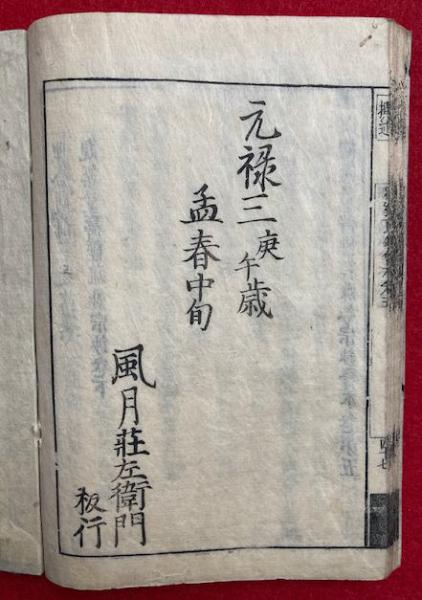 元禄三庚午歳
孟春中旬
風月莊左衛門
板行